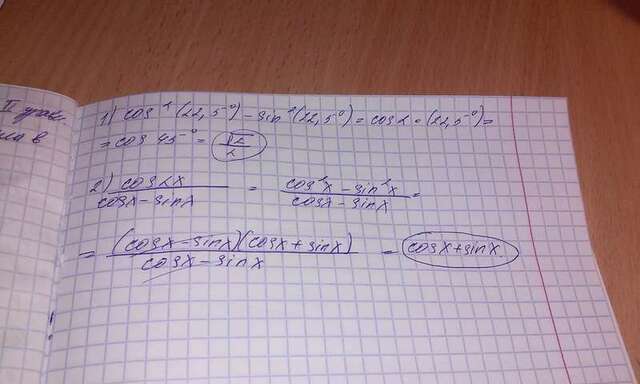 II урав.
1) cos²(22,5°) - sin²(22,5°) = cos 2 · (22,5°) =
= cos 45° = √2/2
2) cos2x / cosx - sinx = cos²x - sin²x / cosx - sinx =
= (cosx - sinx)(cosx + sinx) / cosx - sinx = cosx + sinx